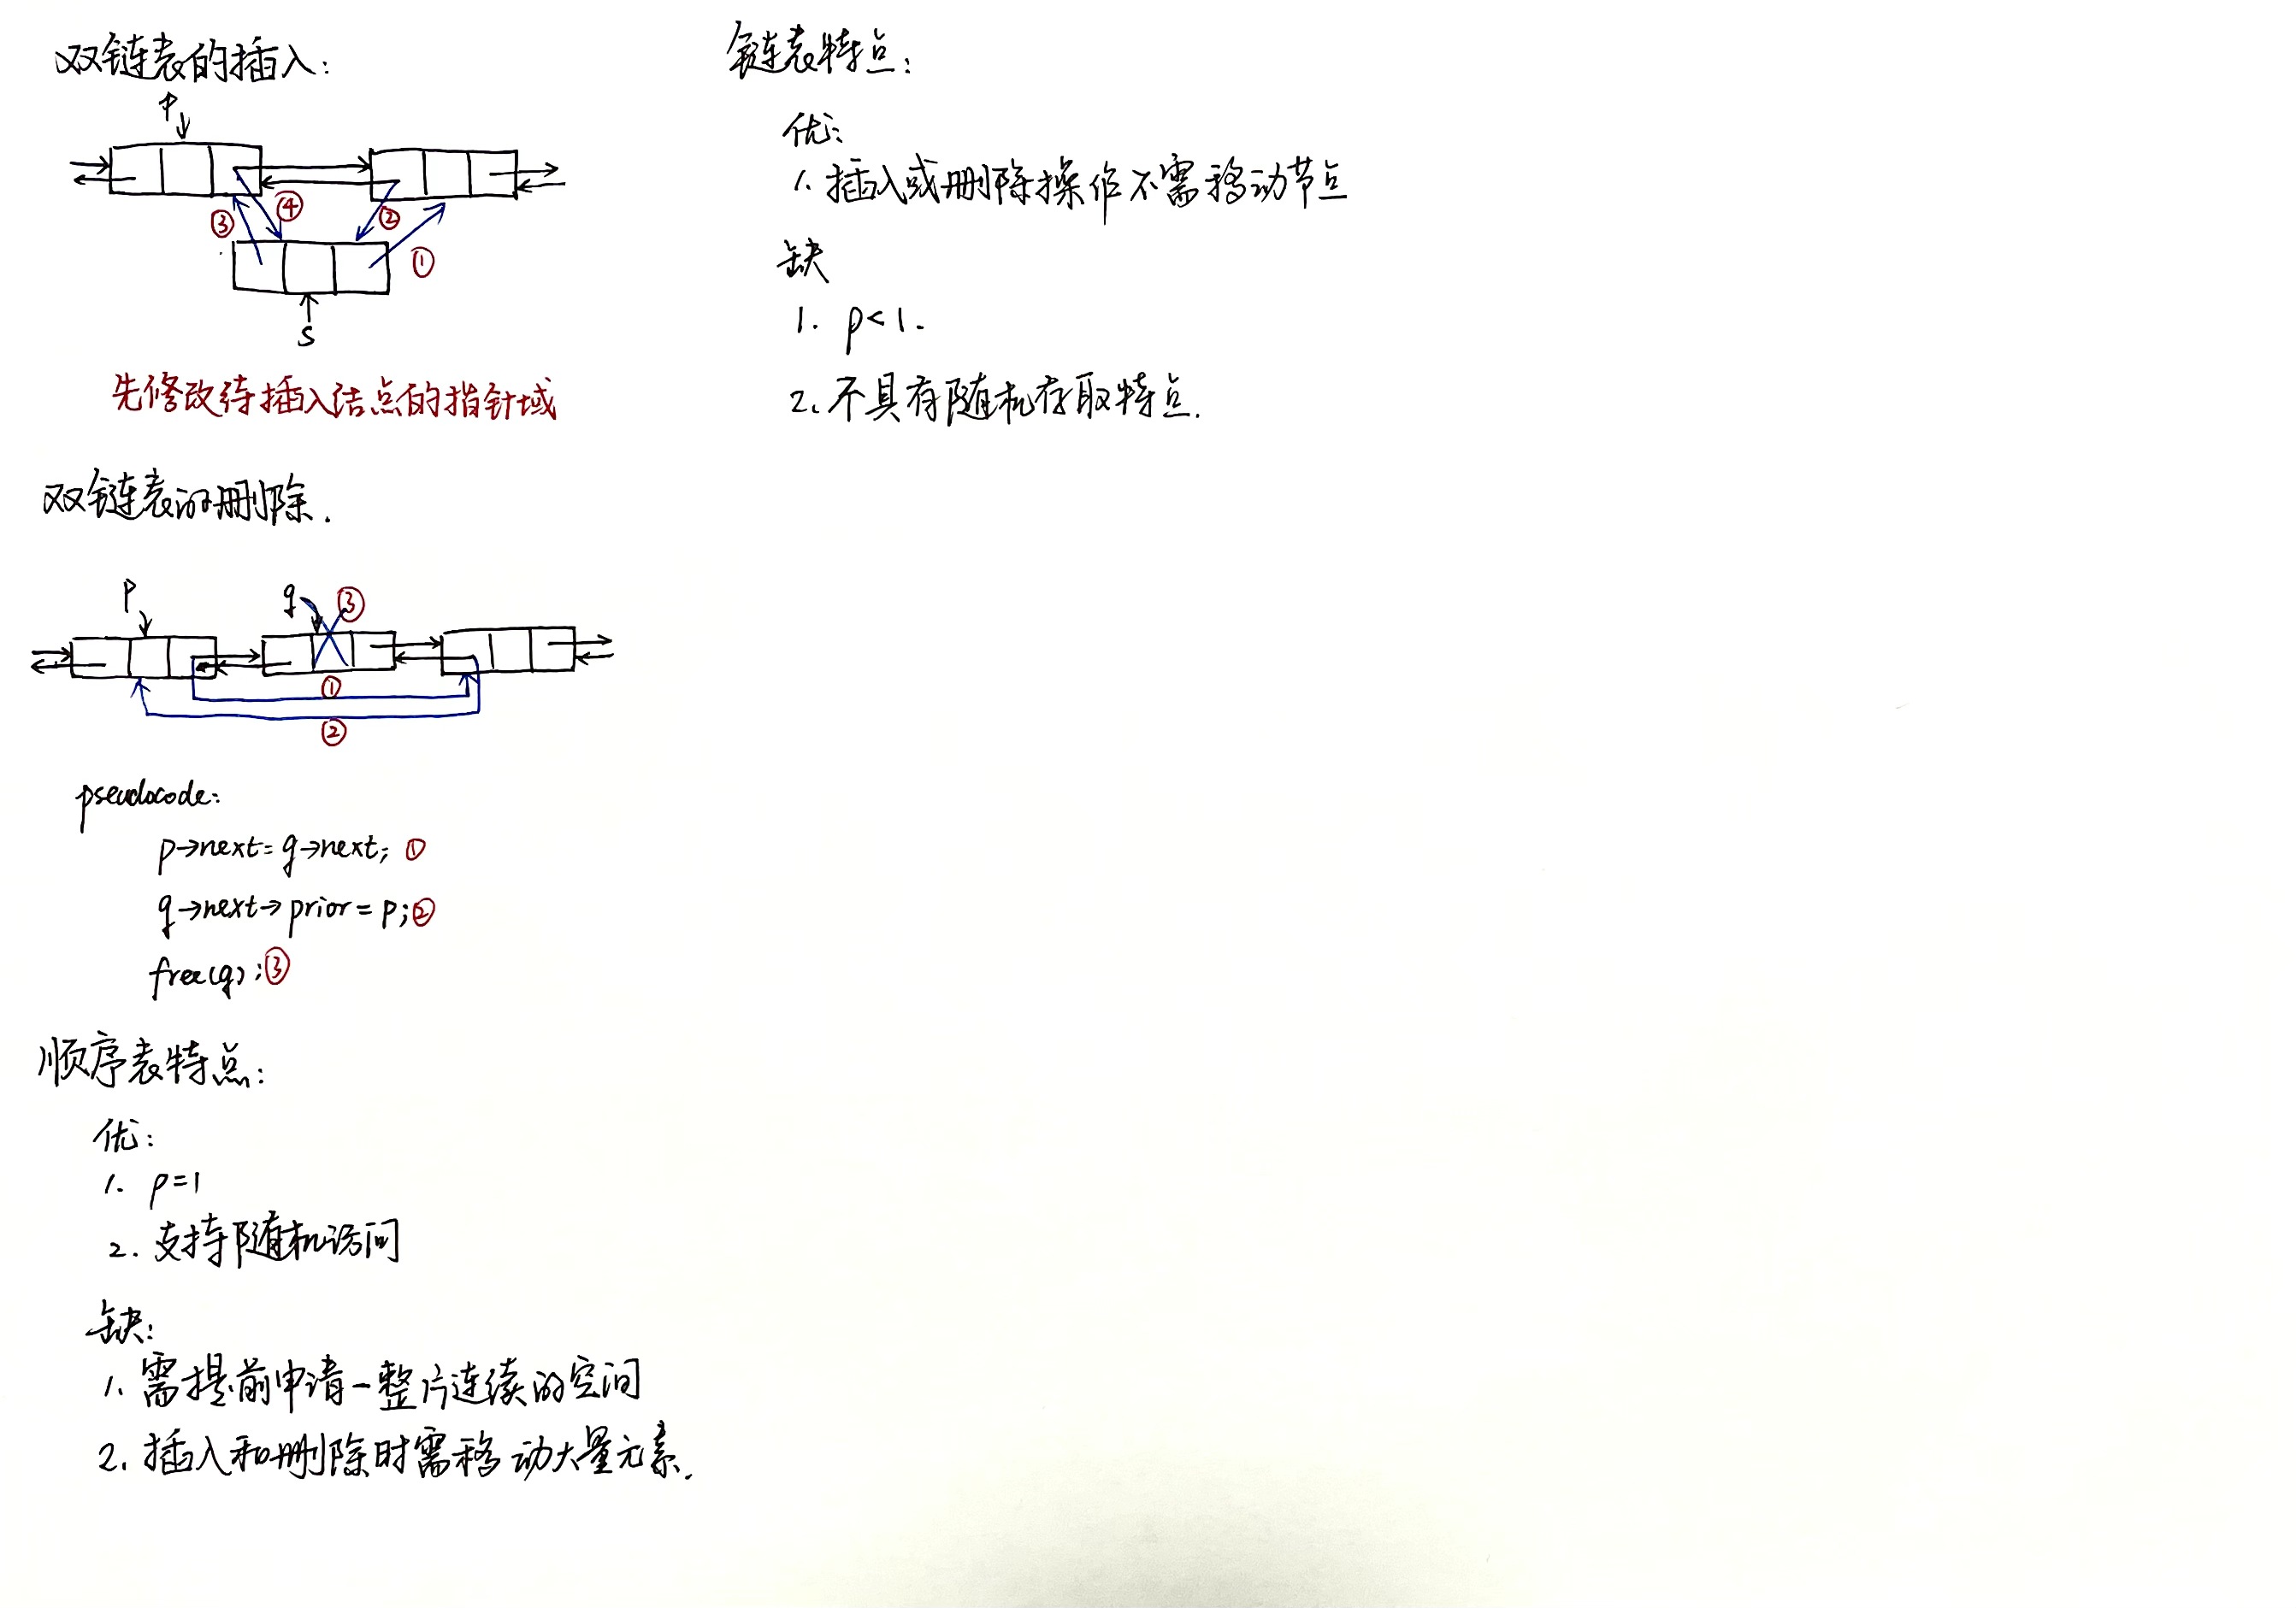 双链表的插入:
p
③ ④ ② ①
s
先修改待插入结点的指针域
双链表的删除.
p q ③
①
②
pseudocode:
p→next=q→next; ①
q→next→prior=p;②
free(q);③
顺序表特点:
优:
1. ρ=1
2. 支持随机访问
缺:
1. 需提前申请一整片连续的空间
2. 插入和删除时需移动大量元素.
链表特点:
优:
1. 插入或删除操作不需移动节点
缺
1. ρ<1.
2. 不具有随机存取特点.